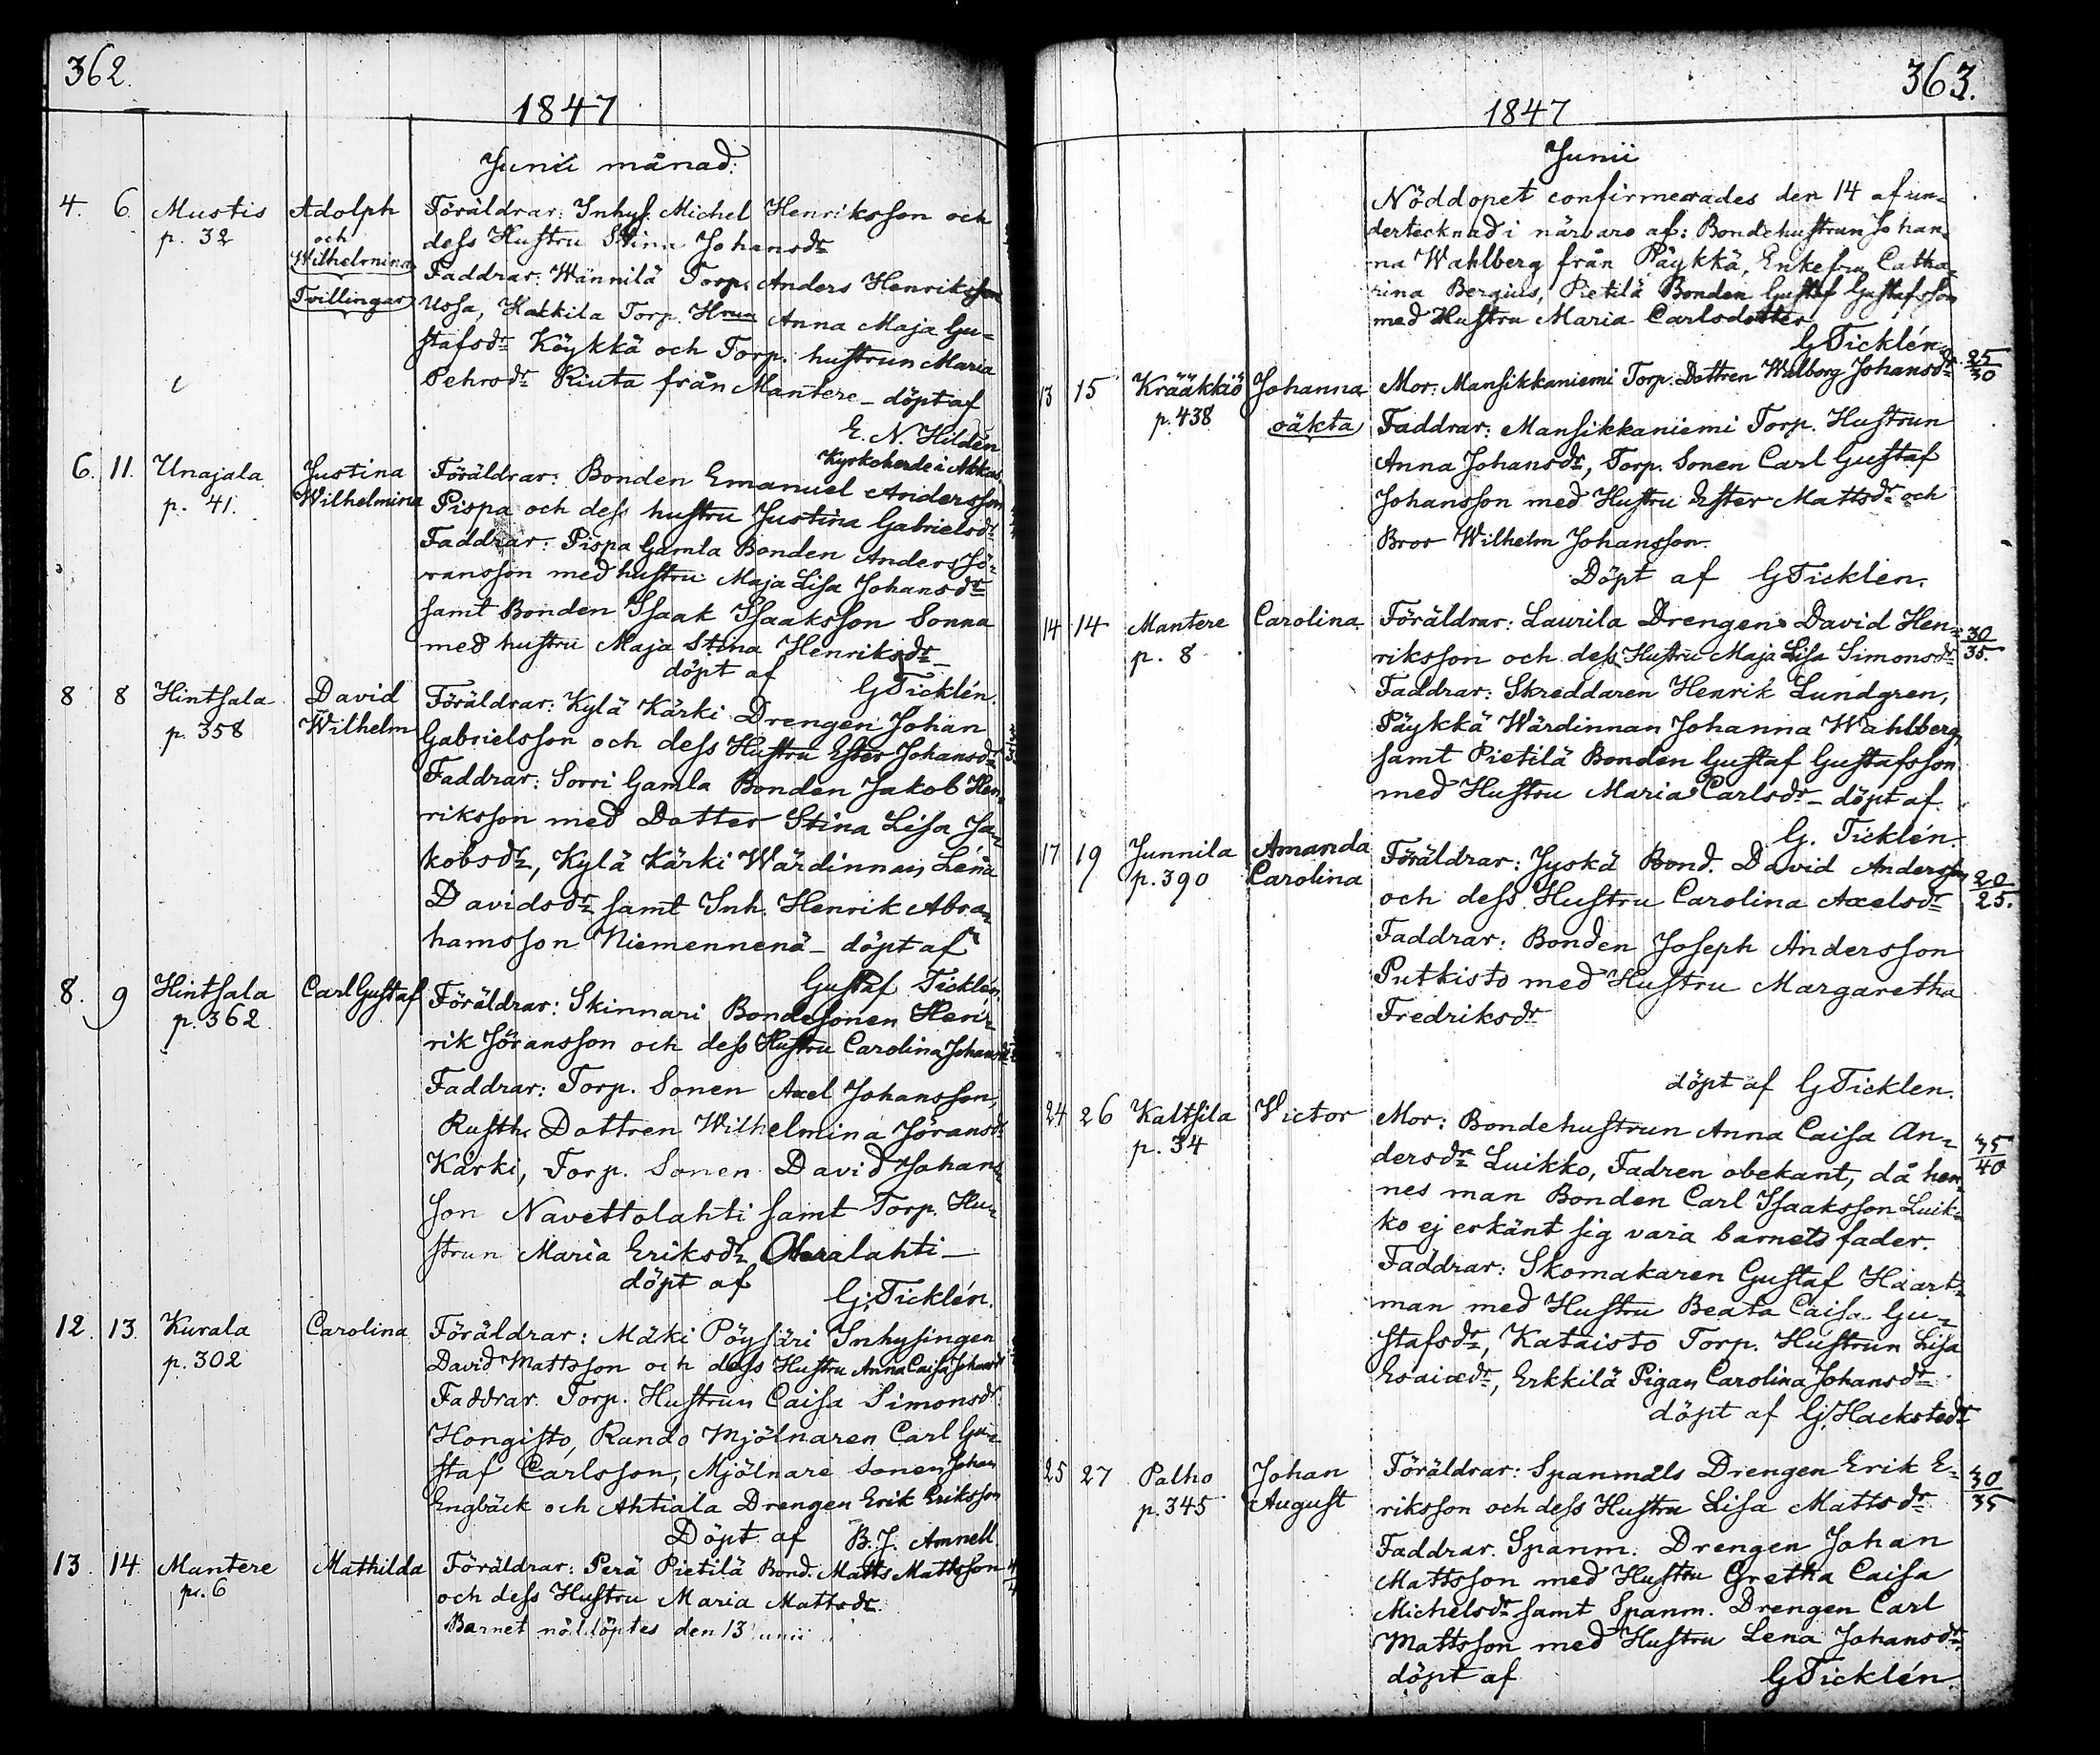 362.
1847
Junii månad:
4. 6. Mustis Adolph Föräldrar: Inhys. Michel Henriksson och
p. 32 och dess Hustru Stina Johansdr
Wilhelmina Faddrar: Wännilä Torp. Anders Henriksson
Tvillingar Ussa, Hakkila Torp. Hrun Anna Maja Gu-
stafsdr Köykkä och Torp. hustrun Maria
Pehrsdr Riuta från Mantere – döpt af
E. N. Hildén
Kyrkoherde i Akkas
6. 11. Unajala Justina Föräldrar: Bonden Emanuel Andersson
p. 41. Wilhelmina Pispa och dess hustru Justina Gabrielsdr
Faddrar: Pispa Gamla Bonden Anders Jö-
ransson med hustru Maja Lisa Johansdr
samt Bonden Isaak Isaaksson Sonna
med hustru Maja Stina Henriksdr –
döpt af GTicklén.
8 8 Hintsala David Föräldrar: Kylä Kärki Drengen Johan
p. 358 Wilhelm Gabrielsson och dess Hustru Ester Johansdr
Faddrar: Sorri Gamla Bonden Jakob Hen-
riksson med Dotter Stina Lisa Ja-
kobsdr, Kylä Kärki Wärdinnan Lena
Davidsdr samt Inh. Henrik Abra-
hamsson Niemennenä – döpt af
Gustaf Ticklén
8. 9 Hintsala Carl Gustaf Föräldrar: Skinnari Bondesonen Hen-
p. 362. rik Jöransson och dess Hustru Carolina Johansdr
Faddrar: Torp. Sonen Axel Johansson,
Rusth. Dottren Wilhelmina Jöransdr
Kärki, Torp. Sonen David Johans-
son Navettolahti samt Torp. Hu-
strun Maria Eriksdr Oteralahti –
döpt af
G. Ticklén.
12. 13. Kurala Carolina Föräldrar: Mäki Pöysäri Inhysingen
p. 302 David Mattsson och dess Hustru Anna Caisa Johansdr
Faddrar. Torp. Hustrun Caisa Simonsdr
Hongisto, Rando Mjölnaren Carl Gu-
staf Carlsson, Mjölnare Sonen Johan
Engbäck och Ahtiala Drengen Erik Eriksson
Döpt af B. J. Amnell.
13. 14. Mantere Mathilda Föräldrar: Perä Pietilä Bond. Matts Mattsson
p. 6 och dess Hustru Maria Mattsdr.
Barnet nöddöptes den 13 Junii
363.
1847
Junii
Nöddopet confirmerades den 14 af un-
dertecknad i närvaro af: Bondehustrun Johan-
na Wahlberg från Päykkä, Enkefru Catha-
rina Bergius, Pietilä Bonden Gustaf Gustafsson
med Hustru Maria Carlsdotter
GTicklén.
13 15 Krääkkiö Johanna Mor: Mansikkaniemi Torp. Dottren Walborg Johansdr 25/30
p. 438 oäkta Faddrar: Mansikkaniemi Torp. Hustrun
Anna Johansdr, Torp. Sonen Carl Gustaf
Johansson med Hustru Ester Mattsdr och
Bror Wilhelm Johansson.
Döpt af GTicklén.
14 14 Mantere Carolina. Föräldrar: Laurila Drengen David Hen- 30/35.
p. 8 riksson och dess Hustru Maja Lisa Simonsdr
Faddrar: Skreddaren Henrik Lundgren,
Päykkä Wärdinnan Johanna Wahlberg,
samt Pietilä Bonden Gustaf Gustafsson
med Hustru Maria Carlsdr – döpt af
G. Ticklén.
17 19 Junnila Amanda Föräldrar: Jyskä Bond. David Andersson 20/25.
p. 390 Carolina och dess Hustru Carolina Axelsdr
Faddrar: Bonden Joseph Andersson
Putkisto med Hustru Margaretha
Fredriksdr
döpt af GTicklen.
24 26 Kaltsila Victor Mor: Bondehustrun Anna Caisa An- 35/40
p. 34 dersdr Luikko, Fadren obekant, då hen-
nes man Bonden Carl Isaaksson Luik-
ko ej erkänt sig vara barnets fader.
Faddrar: Skomakaren Gustaf Haart-
man med Hustru Beata Caisa Gu-
stafsdr, Kataisto Torp. Hustrun Lisa
Esaiædr, Erkkilä Pigan Carolina Johansdr
döpt af G. Hackstedt
25 27 Palho Johan Föräldrar: Spanmåls Drengen Erik E- 30/35
p. 345 August riksson och dess Hustru Lisa Mattsdr
Faddrar. Spanm. Drengen Johan
Mattsson med Hustru Gretha Caisa
Michelsdr samt Spanm. Drengen Carl
Mattsson med Hustru Lena Johansdr
döpt af GTicklén.